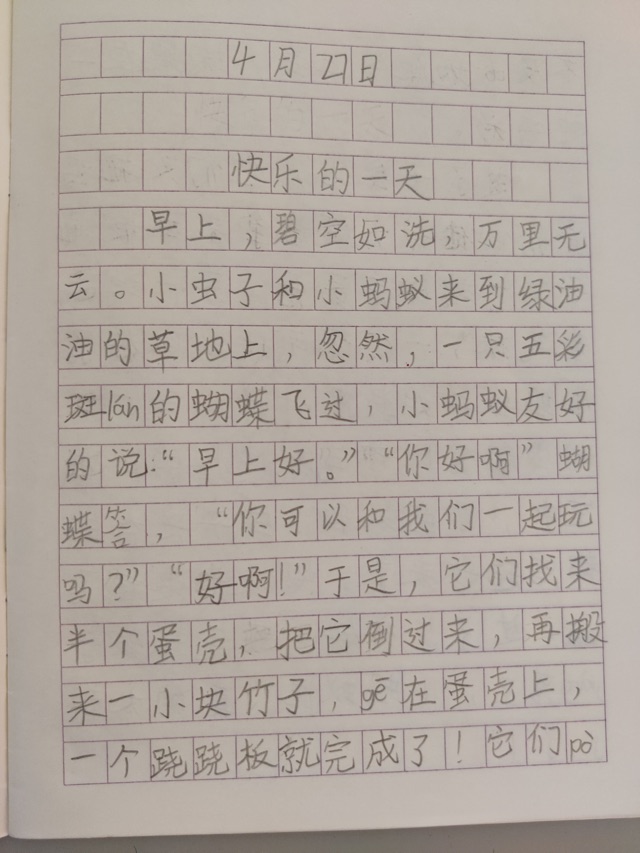 4月27日
快乐的一天
早上，碧空如洗，万里无
云。小虫子和小蚂蚁来到绿油
油的草地上，忽然，一只五彩
斑lán的蝴蝶飞过，小蚂蚁友好
的说：“早上好。”“你好啊”蝴
蝶答，“你可以和我们一起玩
吗？”“好啊！”于是，它们找来
半个蛋壳，把它倒过来，再搬
来一小块竹子，gē在蛋壳上，
一个跷跷板就完成了！它们pò